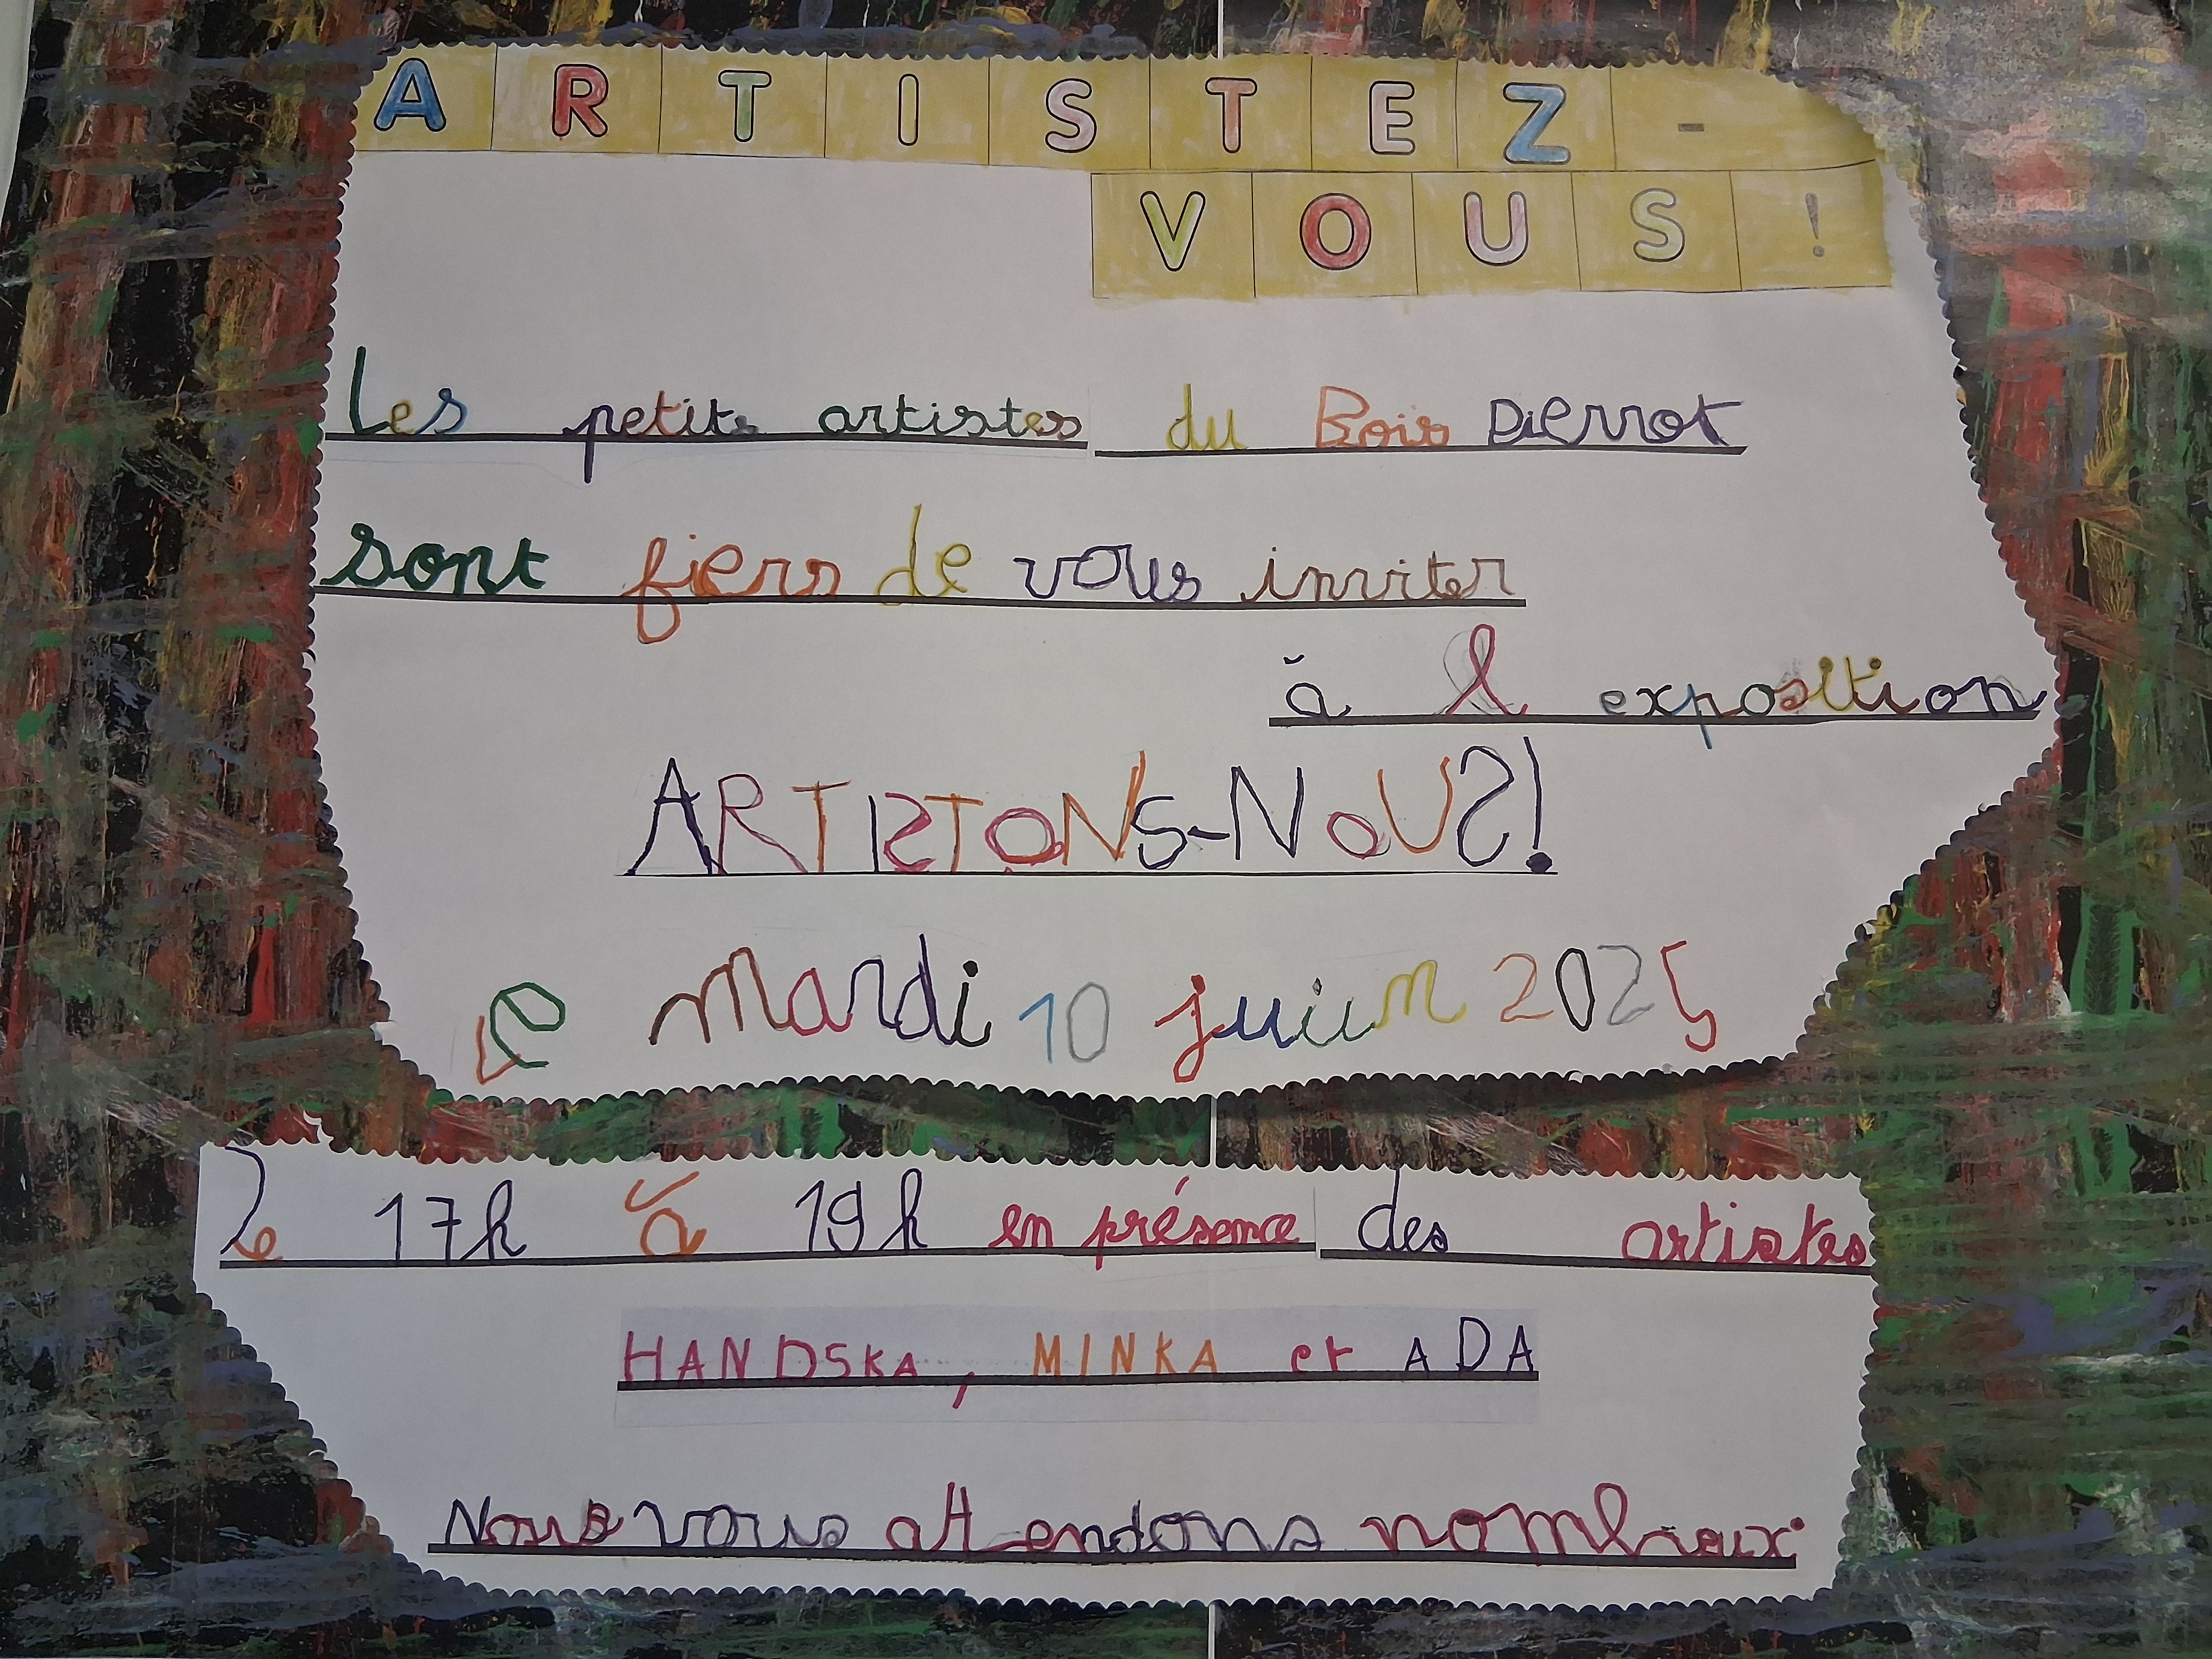 ARTISTEZ-
VOUS !
Les petits artistes du Bois Pierrot
sont fiers de vous inviter
à l exposition
ARTISTONS-NOUS!
le mardi 10 juin 2025
De 17h à 19h en présence des artistes
HANDSKA, MINKA et ADA
Nous vous attendons nombreux